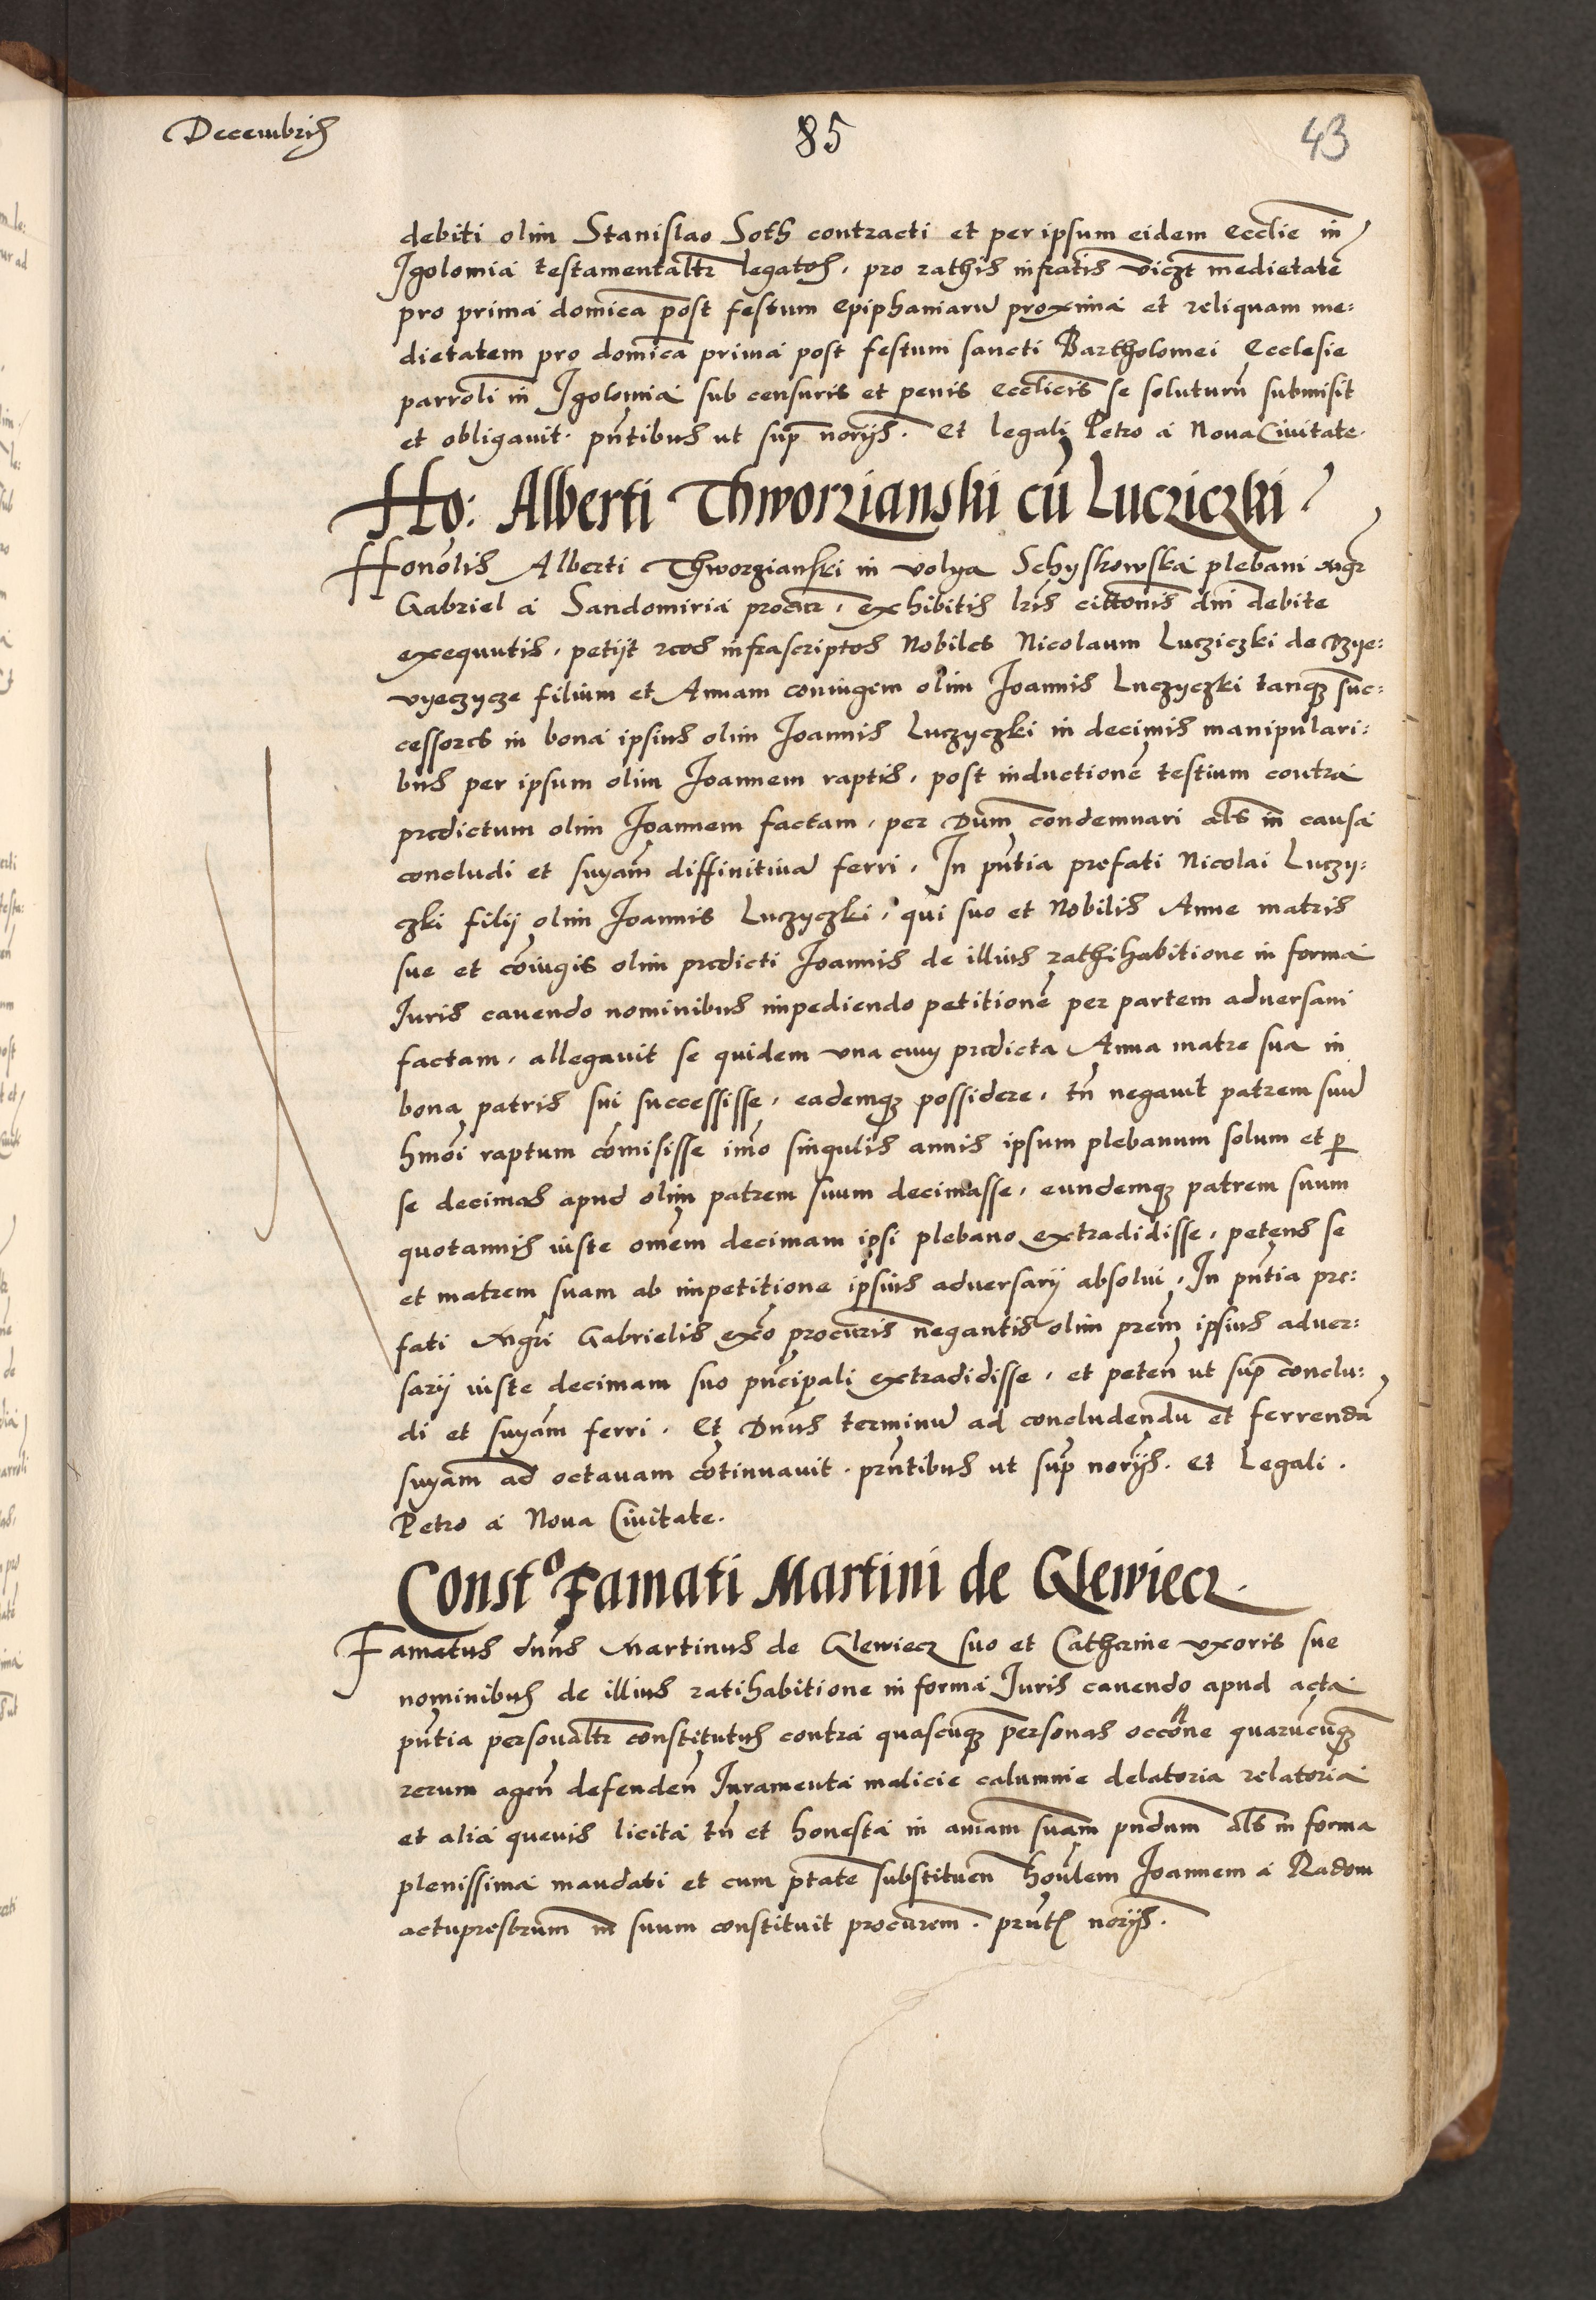 Decembris
85
43
debiti olim Stanislao Soth contracti et per ipsum eidem ecclie in
Igolomia testamentaltr legatos, pro rathis infratis viczt medietate
pro prima domica post festum epiphaniaru proxima et reliquam me:
dietatem pro domica prima post festum sancti Bartholomei ecclesie
parroli in Igolomia sub censuris et penis ecclicis se soluturu submisit
et obligavit. pntibus ut sup norijs. et legali Petro a Nova Civitate.
Ho: Alberti Thworzianski cu Lucziczki
Honolis Alberti Thworzianski in volya Schyskowska plebani mgr
Gabriel a Sandomiria procur, exhibitis lris cittonis dni debite
exequutis, petijt reos infrascriptos Nobiles Nicolaum Lucziczki de Czye:
vyeczycze filium et Annam coniugem olim Joannis Luczyczki tanq3 suc:
cessores in bona ipsius olim Joannis Luczyczki in decimis manipulari:
bus per ipsum olim Joannem raptis, post inductione testium contra
predictum olim Joannem factam, per Dum condemnari als in causa
concludi et snyam diffinitiva ferri. In pntia prefati Nicolai Luczy:
czki filij olim Joannis Luczyczki, qui suo et Nobilis Anne matris
sue et coiugis olim predicti Joannis de illius rathihabitione in forma
Iuris cavendo nominibus impediendo petitione per partem adversam
factam, allegavit se quidem una cum predicta Anna matre sua in
bona patris sui successisse, eademq3 possidere, tn negavit patrem suu
hmoi raptum comisisse imo singulis annis ipsum plebanum solum et p
se decimas apud olim patrem suum decimasse, eundemq3 patrem suum
quotannis iuste omem decimam ipsi plebano extradidisse, petens se
et matrem suam ab impetitione ipsius adversarij absolui, In pntia pre:
fati mgri Gabrielis exo procuris negantis olim prem ipsius adver:
sarij iuste decimam suo pncipali extradidisse, et peten ut sup conclu:
di et snyam ferri. Et Dnus terminu ad concludendu et ferrenda
snyam ad octavam cotinuavit. prntibus ut sup norijs. et Legali.
Petro a Nova Civitate.
Const° Famati Martini de Glewiecz
Famatus dnus Martinus de Glewiecz suo et Catherine uxoris sue
nominibus de illius ratihabitione in forma Iuris cavendo apud acta
pntia personaltr constitutus contra quascuq3 personas occone quarucuq3
rerum agen defenden Iuramenta malicie calumnie delatoria relatoria
et alia quevis licita tn et honesta in aniam suam pndum als in forma
plenissima mandati et cum ptate substituen honlem Joannem a Radom
actuprestrum in suum constituit procurem. prntibus norijs.